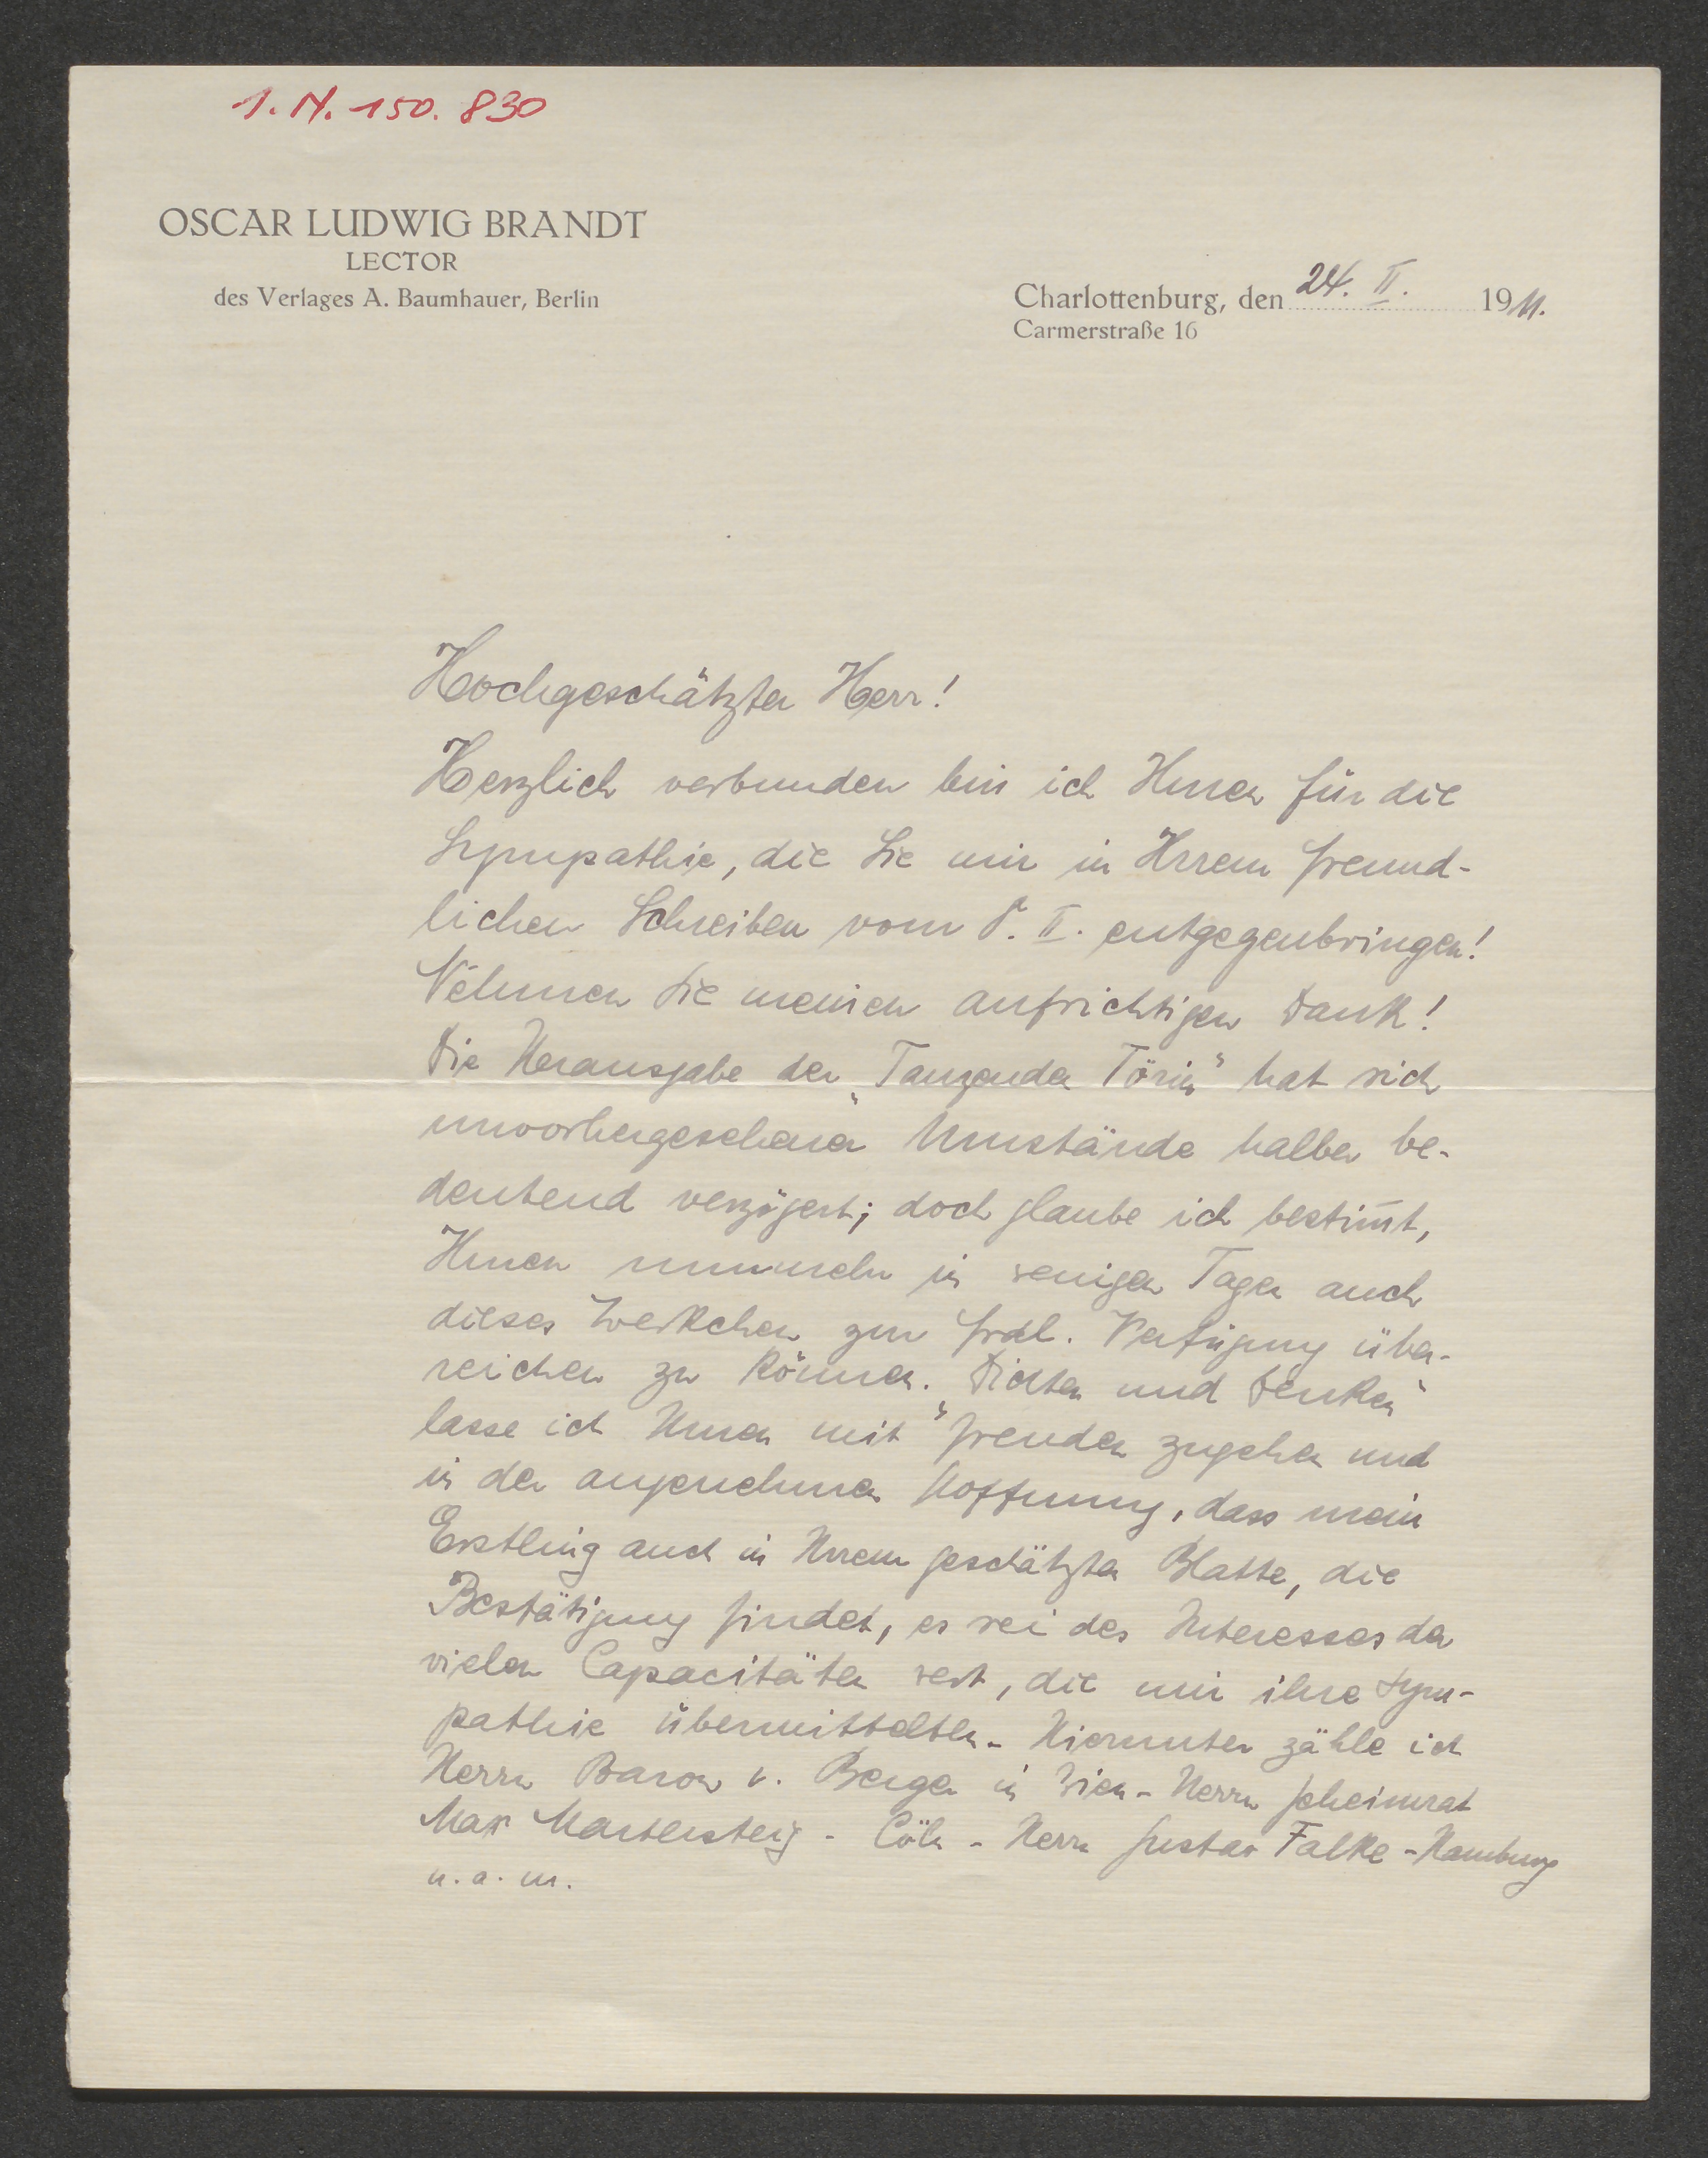 I. N. 150. 830
OSCAR LUDWIG BRANDT
LECTOR
des Verlages A. Baumhauer, Berlin
Charlottenburg, den 24. II. 1911.
Carmerstraße 16
Hochgeschätzter Herr!
Herzlich verbunden bin ich Ihnen für die
Sympathie, die Sie mir in Ihrem freund-
lichen Schreiben vom 8. II. entgegenbringen!
Nehmen Sie meinen aufrichtigen Dank!
Die Herausgabe der „Tanzenden Törin“ hat sich
unvorhergesehener Umstände halber be-
deutend verzögert; doch glaube ich bestim̅t,
Ihnen nunmehr in wenigen Tagen auch
dieses Werkchen zur frdl. Verfügung über-
reichen zu können. „Dichten und Denken“
lasse ich Ihnen mit Freuden zugehen und
in der angenehmen Hoffnung, dass mein
Erstling auch in Ihrem geschätzten Blatte, die
Bestätigung findet, es sei des Interesses der
vielen Capacitäten wert, die mir ihre Sym-
pathie übermittelten. Hierunter zähle ich
Herrn Baron v. Berger in Wien - Herrn Geheimrat
Max Martersteig - Cöln - Herrn Gustav Falke - Hamburg
u. a. m.